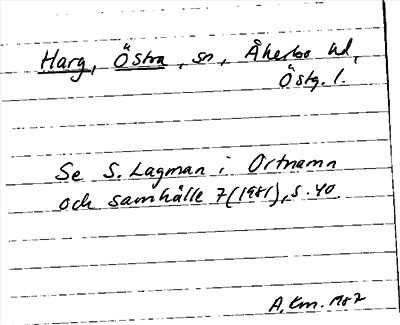 Harg, Östra, sn, Åkerbo hd,
Östg. l.
Se S. Lagman i Ortnamn
och samhälle 7 (1981), s. 40.
A. Em. 1982